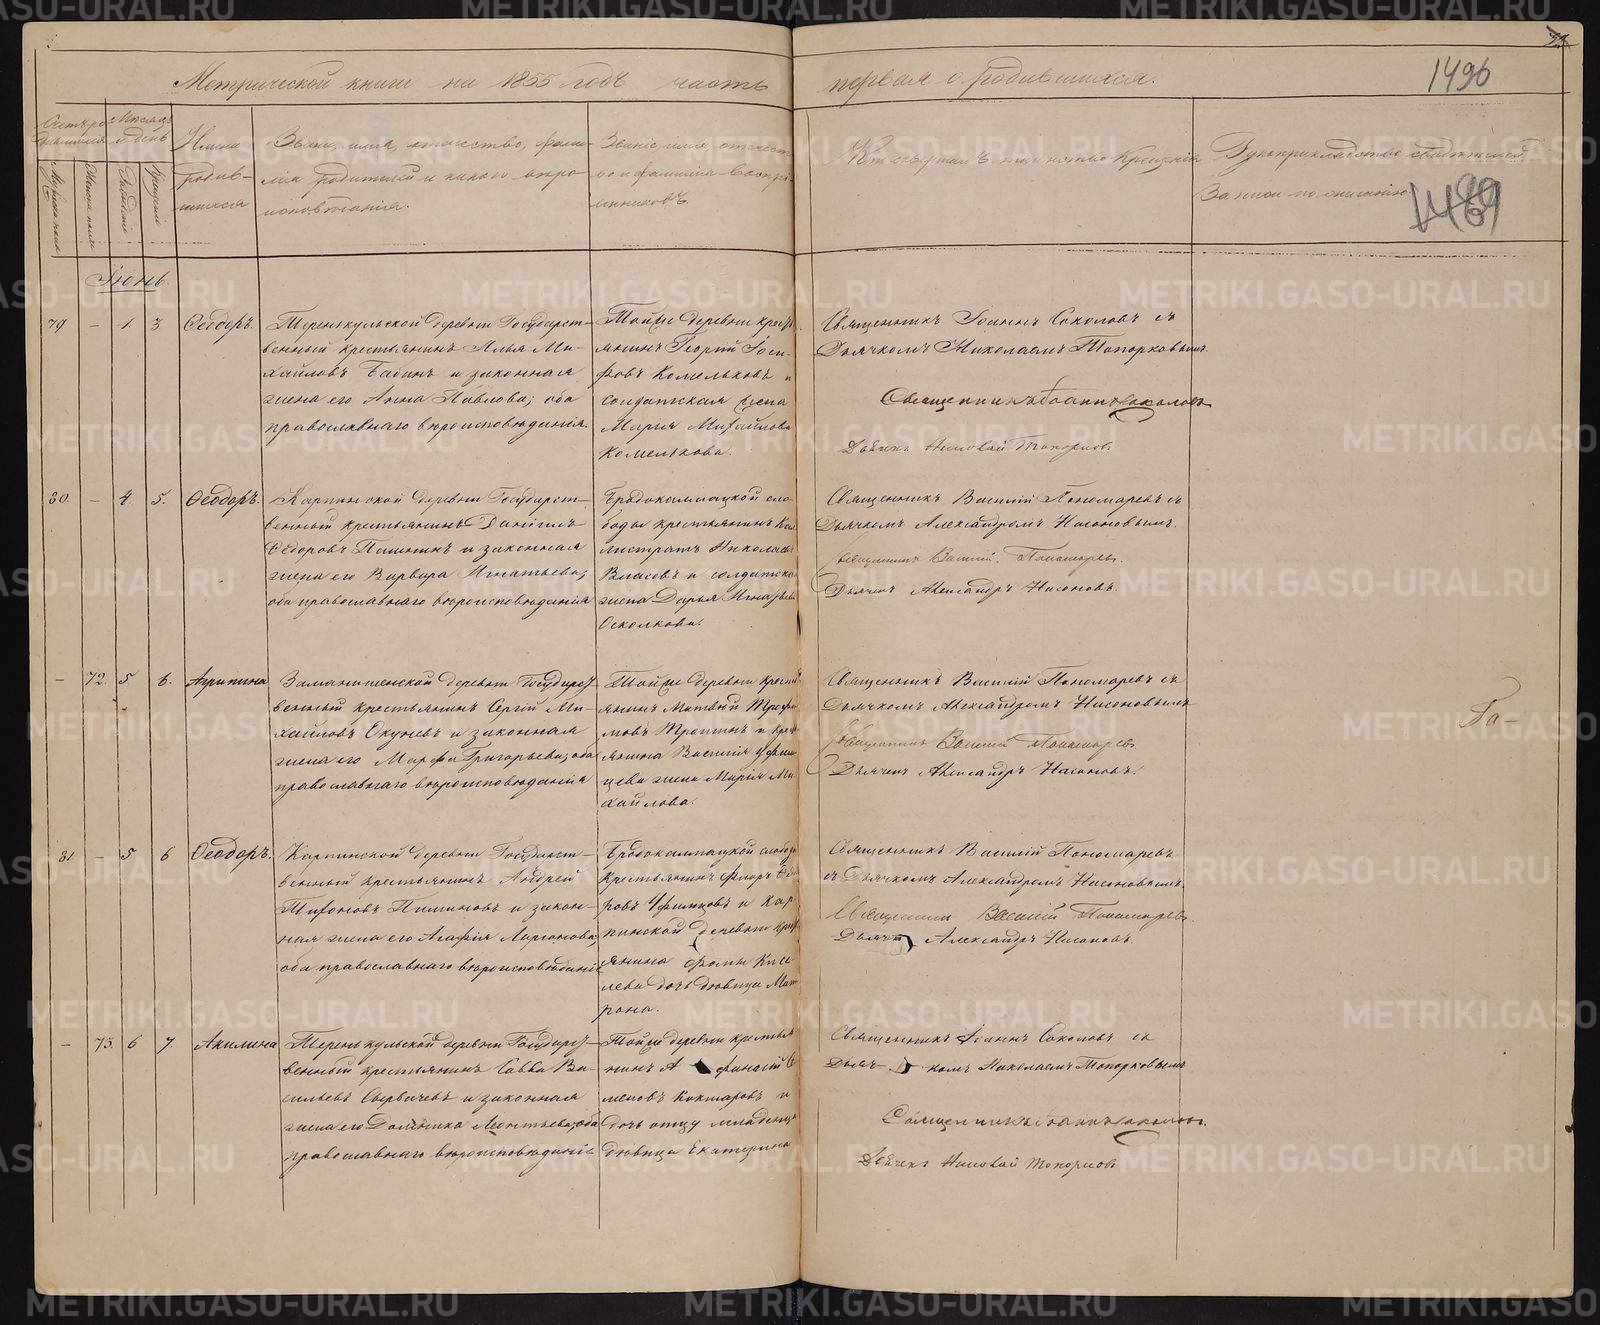 Метрической книги на 1855 годъ часть первая о родившихся.
1496
Счетъ ро-
дившихся
Мѣсяцъ
и день
Мужеска пола
Женска пола
Рожденія
Крещенія
Имена
родив-
шихся
Званіе, имя, отчество, фами-
лія родителей и какого вѣро-
исповѣданія.
Званіе имя, отчест-
во и фамилія воспрі-
емниковъ.
Кто совершалъ таинство крещенія
Рукоприкладство свидѣтелей
записи по желанію
1489
Іюнь.
79 – 1. 3. Ѳеодоръ.
Теренкульской деревни Государст-
венный крестьянинъ Илья Ми-
хайловъ Бабинъ и законная
жена его Анна Павлова; оба
православнаго вѣроисповѣданія.
Тойже деревни крестъ-
янинъ Георгій Іоси-
фовъ Комельковъ и
солдатская жена
Марія Михайлова
Комелькова.
Священникъ Іоаннъ Соколовъ съ
Дьячкомъ Николаемъ Топорковымъ.
Священникъ Іоаннъ Соколовъ
Дьячекъ Николай Топорковъ
80. – 4. 5. Ѳеодоръ.
Карпинской деревни Государст-
венный крестьянинъ Даніилъ
Ѳедоровъ Пишнинъ и законная
жена его Варвара Игнатьева;
оба православнаго вѣроисповѣданія
Бродокалмацкой сло-
боды крестьянинъ Кал-
листратъ Николаевъ
Власовъ и солдатска
жена Дарья Игнатьева
Осколкова.
Священникъ Василій Пономаревъ съ
Дьячкомъ Александромъ Насоновымъ.
Священникъ Василій Пономаревъ.
Дьячекъ Александръ Насоновъ.
– 72. 5 6. Агрипина
Государст-
венный крестьянинъ Сергій Ми-
хайловъ Окуневъ и законная
жена его Марфа Григорьева; оба
православнаго вѣроисповѣданія
Тойже деревни крестъ-
янинъ Матвей Трофи-
мовъ и крест
янина Василія Уфим-
цева жена Марія Ми-
хайлова.
Священникъ Василій Пономаревъ съ
Дьячкомъ Александромъ Насоновымъ
Священникъ Василій Пономаревъ.
Дьячекъ Александръ Насоновъ.
81. – 5 6 Ѳеодоръ.
Карпинской деревни Государст-
венный крестьянинъ Андрей
и закон-
ная жена его Агафія Ларіонова;
оба православнаго вѣроисповѣданія
Бродокалмацкой слободы
крестьянинъ Флоръ Ѳедо
ровъ Уфимцовъ и Кар
пинской деревни крест
янина Фомы Кисе-
лева дочь дѣвица Мат
рона.
Священникъ Василій Пономаревъ
съ Дьячкомъ Александромъ Насоновымъ.
Священникъ Василій Пономаревъ.
Дьячекъ Александръ Насоновъ.
– 73. 6 7. Акилина
Теренкульской деревни Государст-
венный крестьянинъ Савва Ва-
сильевъ и законная
жена его Домника Леонтьева; оба
православнаго вѣроисповѣданія
Тойже деревни крестья
нинъ Афанасій Се
меновъ Кокшаровъ и
дочь отцу младенца
дѣвица Екатерина
Священникъ Іоаннъ Соколовъ съ
Дьяч- комъ Николаемъ Топорковымъ
Священникъ Іоаннъ Соколовъ.
Дьячекъ Николай Топорковъ
Га-